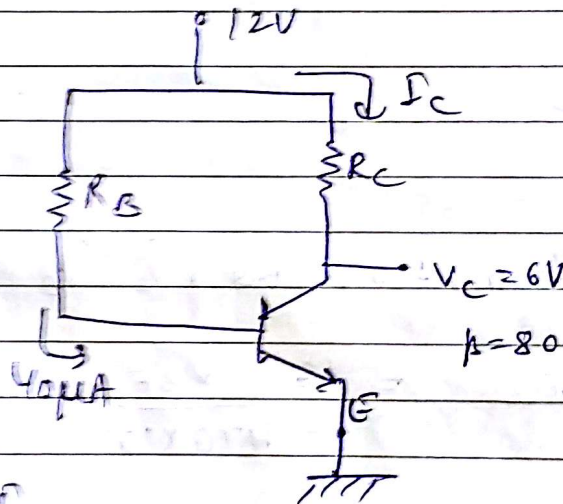 12V
I_C
R_C
R_B
V_C = 6V
β = 80
40μA
E